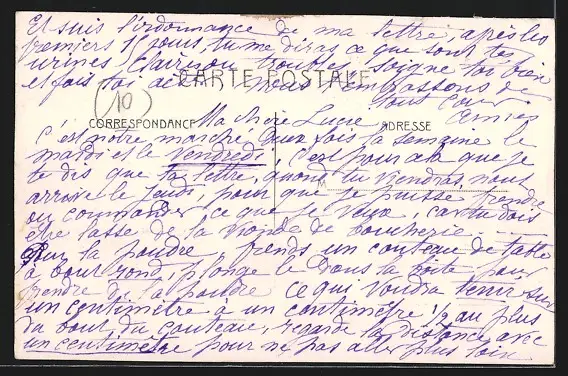 Et suis l'ordonnance de ma lettre, après les
premiers 15 jours, tu me diras ce que sont tes
urines clair ou troubles, soigne toi bien
et fais toi nous embrassons de
tout cœur.
CARTE POSTALE
10
CORRESPONDANCE
ADRESSE
Ma chère Lucie
C'est notre marché deux fois la semaine le
mardi et le Vendredi, c'est pour cela que je
te dis que ta lettre, quand tu viendras, nous
arrive le jeudi, pour que je puisse prendre
ou commander ce que je veux, car tu dois
être lasse de la viande de boucherie
Pour la poudre, prends un couteau de table
à bout rond, plonge le dans la boîte, pour
prendre de la poudre ce qui voudra tenir sur
un centimètre à un centimètre 1/2 au plus
du bout du couteau, regarde la distance avec
un centimètre pour ne pas aller plus loin.